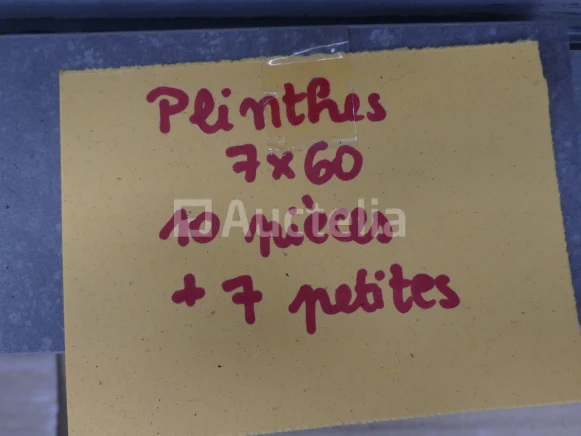 Plinthes
7 x 60
10 pièces
+ 7 petites
Auctelia